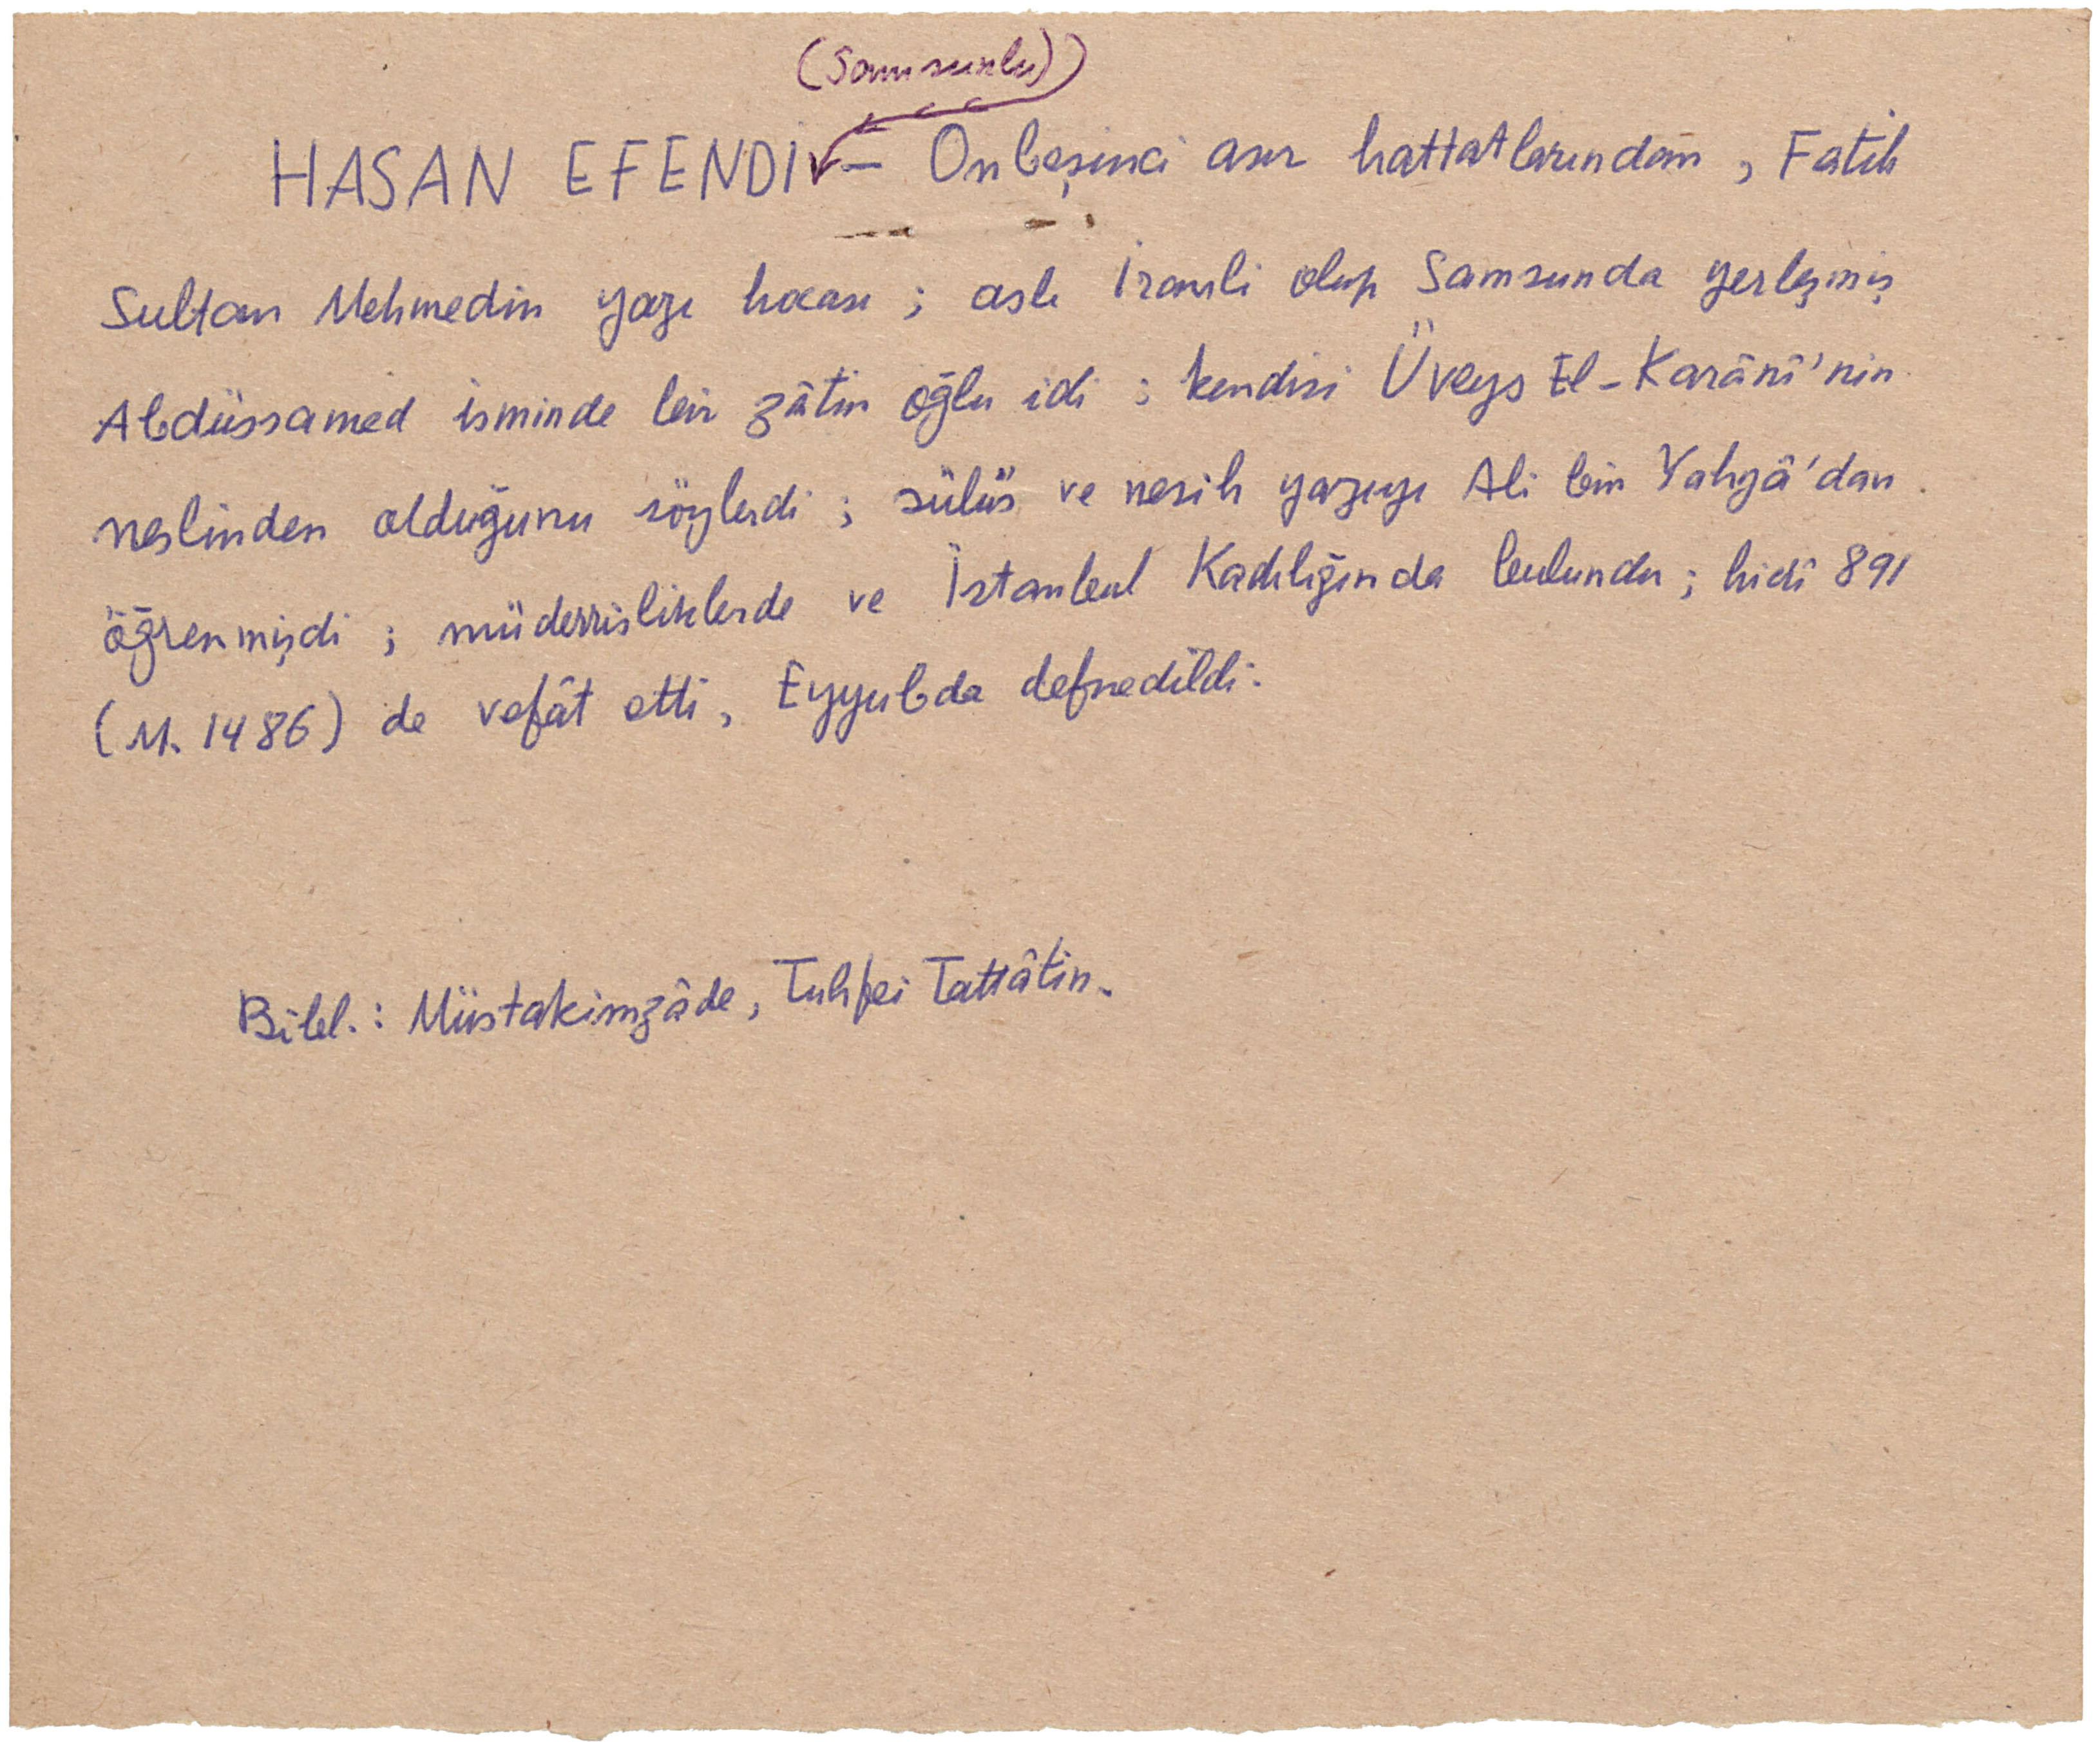 (Samsunlu)
HASAN EFENDİ — Onbeşinci asır hattatlarından, Fatih
Sultan Mehmedin yazı hocası; aslı İranlı olup Samsunda yerleşmiş
Abdüssamed isminde bir zâtin oğlu idi; kendisi Üveys El-Karânî'nin
neslinden olduğunu söylerdi; sülüs ve nesih yazıyı Ali bin Yahyâ'dan
öğrenmişdi; müderrisliklerde ve İstanbul Kadılığında bulundu; hicrî 891
(M. 1486) de vefât etti, Eyyubda defnedildi.
Bibl.: Müstakimzâde, Tuhfei Tattâtin.